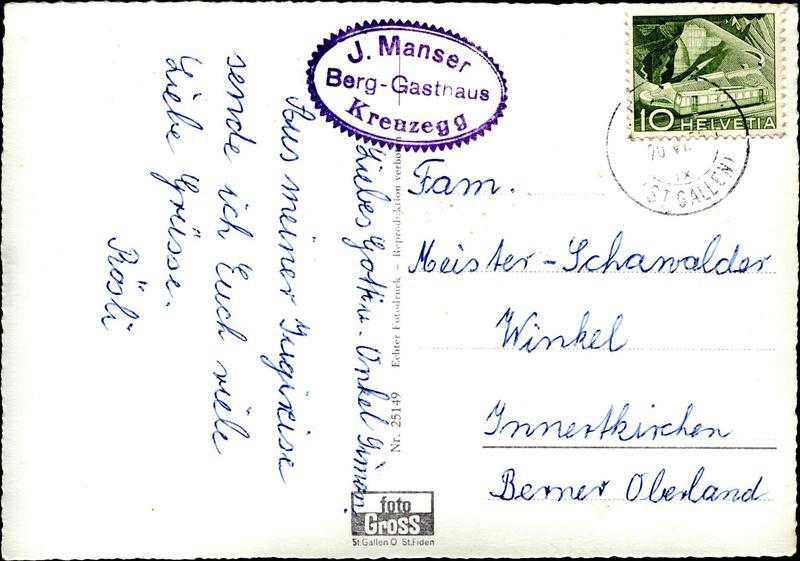 J. Manser
Berg-Gasthaus
Kreuzegg
10 HELVETIA
(ST GALLEN)
Liebes Gotti u. Onkel Simon
Aus meiner
sende ich Euch viele
Liebe Grüsse.
Rösli
Nr. 25149 Echter Fotodruck – Reproduktion verboten
foto
Gross
St.Gallen O St.Fiden
Fam.
Meister-Schawalder
Winkel
Innertkirchen
Berner Oberland